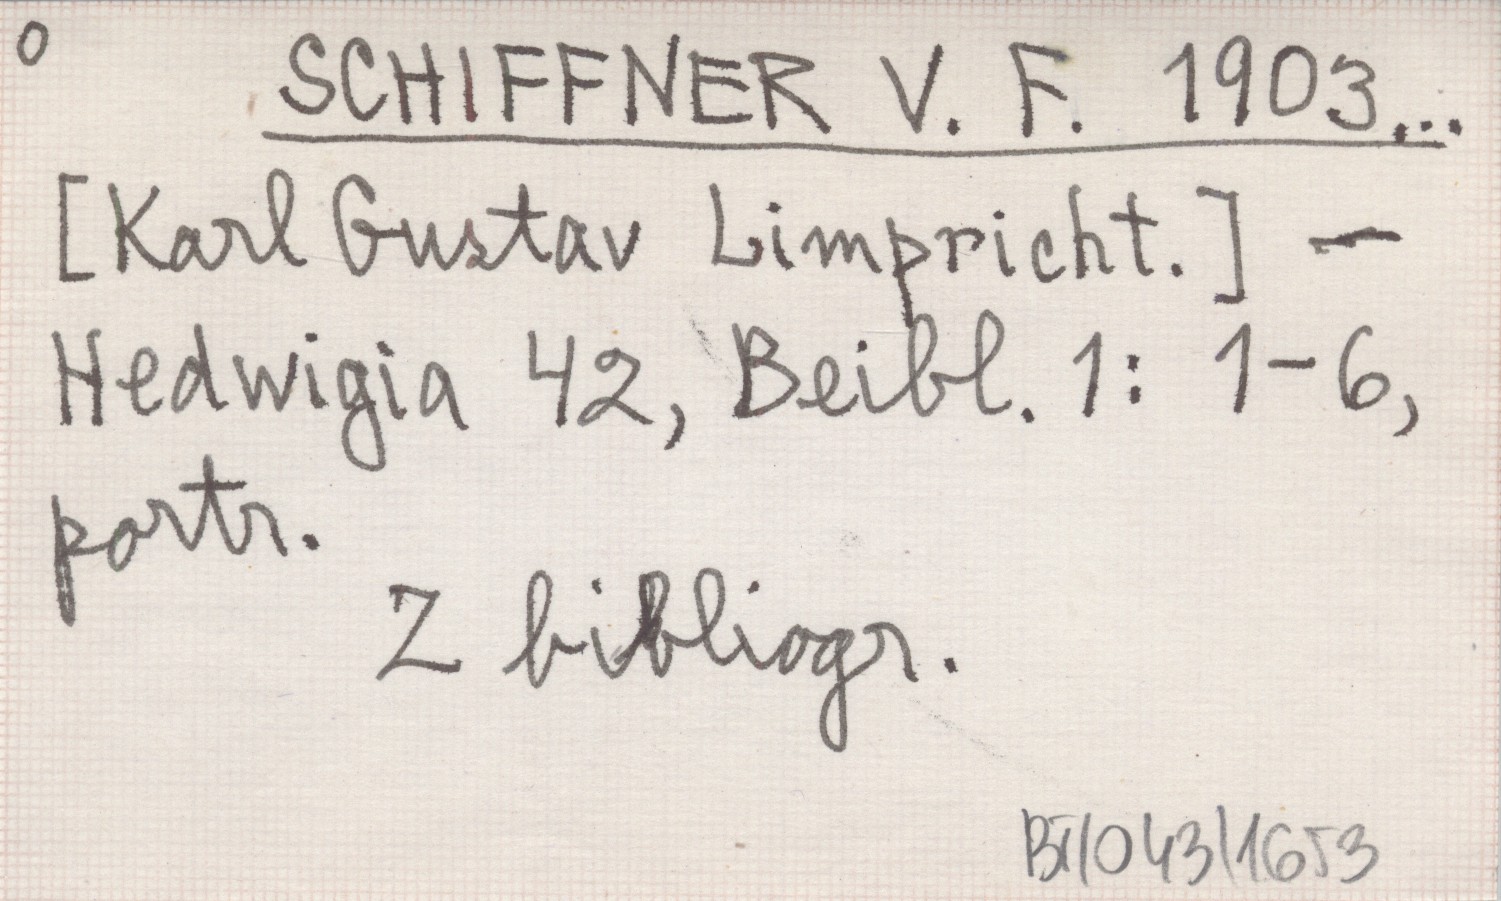 o
SCHIFFNER V. F. 1903...
[Karl Gustav Limpricht.] —
Hedwigia 42, Beibl. 1: 1-6,
portr.
Z bibliogr.
BI/043/1653